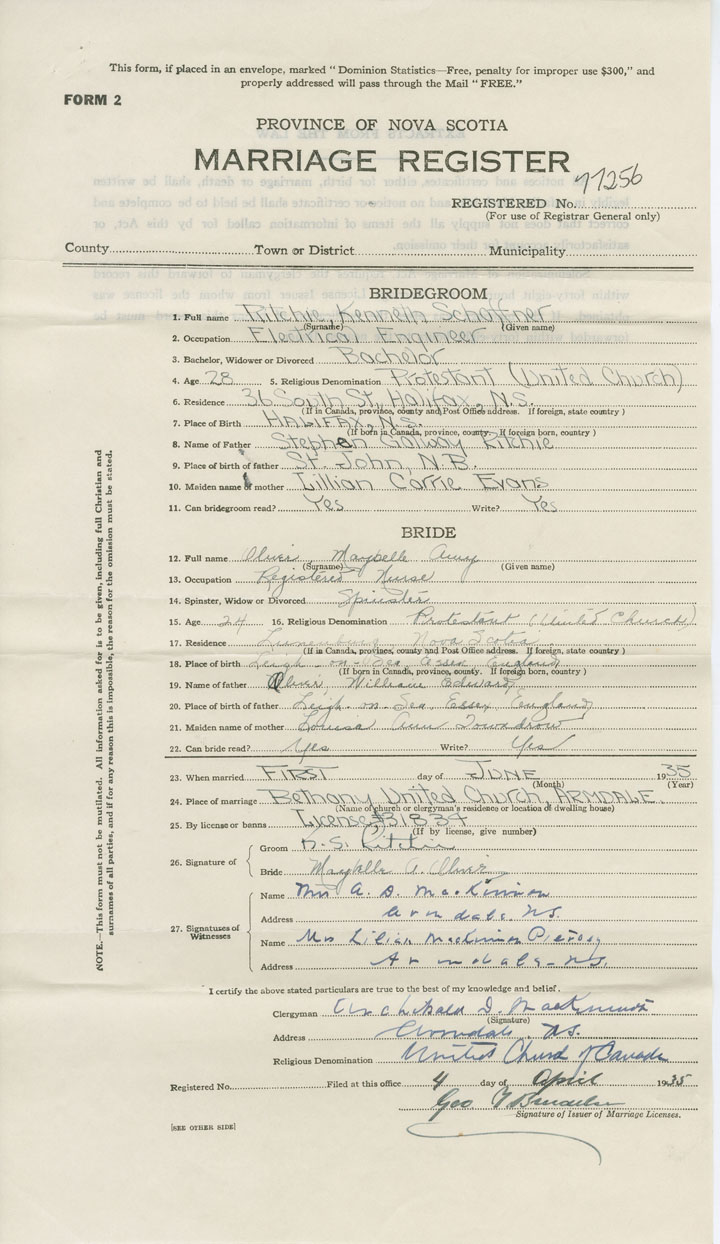 This form, if placed in an envelope, marked " Dominion Statistics—Free, penalty for improper use $300," and
properly addressed will pass through the Mail " FREE."
FORM 2
PROVINCE OF NOVA SCOTIA
MARRIAGE REGISTER
77256
REGISTERED No.
(For use of Registrar General only)
County Town or District Municipality
BRIDEGROOM
1. Full name Ritchie, Kenneth Schaffner
(Surname) (Given name)
2. Occupation Electrical Engineer
3. Bachelor, Widower or Divorced Bachelor
4. Age 28 5. Religious Denomination Protestant (United Church)
6. Residence 36 South St, Halifax, N.S.
(If in Canada, province, county and Post Office address. If foreign, state country )
7. Place of Birth HALIFAX, N.S.
(If born in Canada, province, county. If foreign born, country )
8. Name of Father Stephen Galway Ritchie
9. Place of birth of father St. John, N.B.
10. Maiden name of mother Lillian Carrie Evans
11. Can bridegroom read? Yes Write? Yes
BRIDE
12. Full name Oliver, Maybelle Amy
(Surname) (Given name)
13. Occupation Registered Nurse
14. Spinster, Widow or Divorced Spinster
15. Age 24 16. Religious Denomination Protestant (United Church)
17. Residence Lunenburg Nova Scotia
(If in Canada, province, county and Post Office address. If foreign, state country )
18. Place of birth Leigh-on-Sea Essex England
(If born in Canada, province, county. If foreign born, country )
19. Name of father Oliver William Edward
20. Place of birth of father Leigh-on-Sea Essex England
21. Maiden name of mother Louisa Ann Towndrow
22. Can bride read? Yes Write? Yes
23. When married FIRST day of JUNE 1935
(Month) (Year)
24. Place of marriage Bethany United Church, ARMDALE
(Name of church or clergyman's residence or location of dwelling house)
25. By license or banns License #31834
(If by license, give number)
26. Signature of
Groom K. S. Ritchie
Bride Maybelle A. Oliver
27. Signatures of
Witnesses
Name Mrs A. D. MacKinnon
Address Armdale, N.S.
Name Mrs Lilian MacKinnon
Address Armdale - N.S.
I certify the above stated particulars are true to the best of my knowledge and belief.
Clergyman Archibald D. MacKinnon
(Signature)
Address Armdale, N.S.
Religious Denomination United Church of Canada
Registered No. Filed at this office 4 day of April 1935
Geo
Signature of Issuer of Marriage Licenses.
[SEE OTHER SIDE]
NOTE.—This form must not be mutilated. All information asked for is to be given, including full Christian and
surnames of all parties, and if for any reason this is impossible, the reason for the omission must be stated.